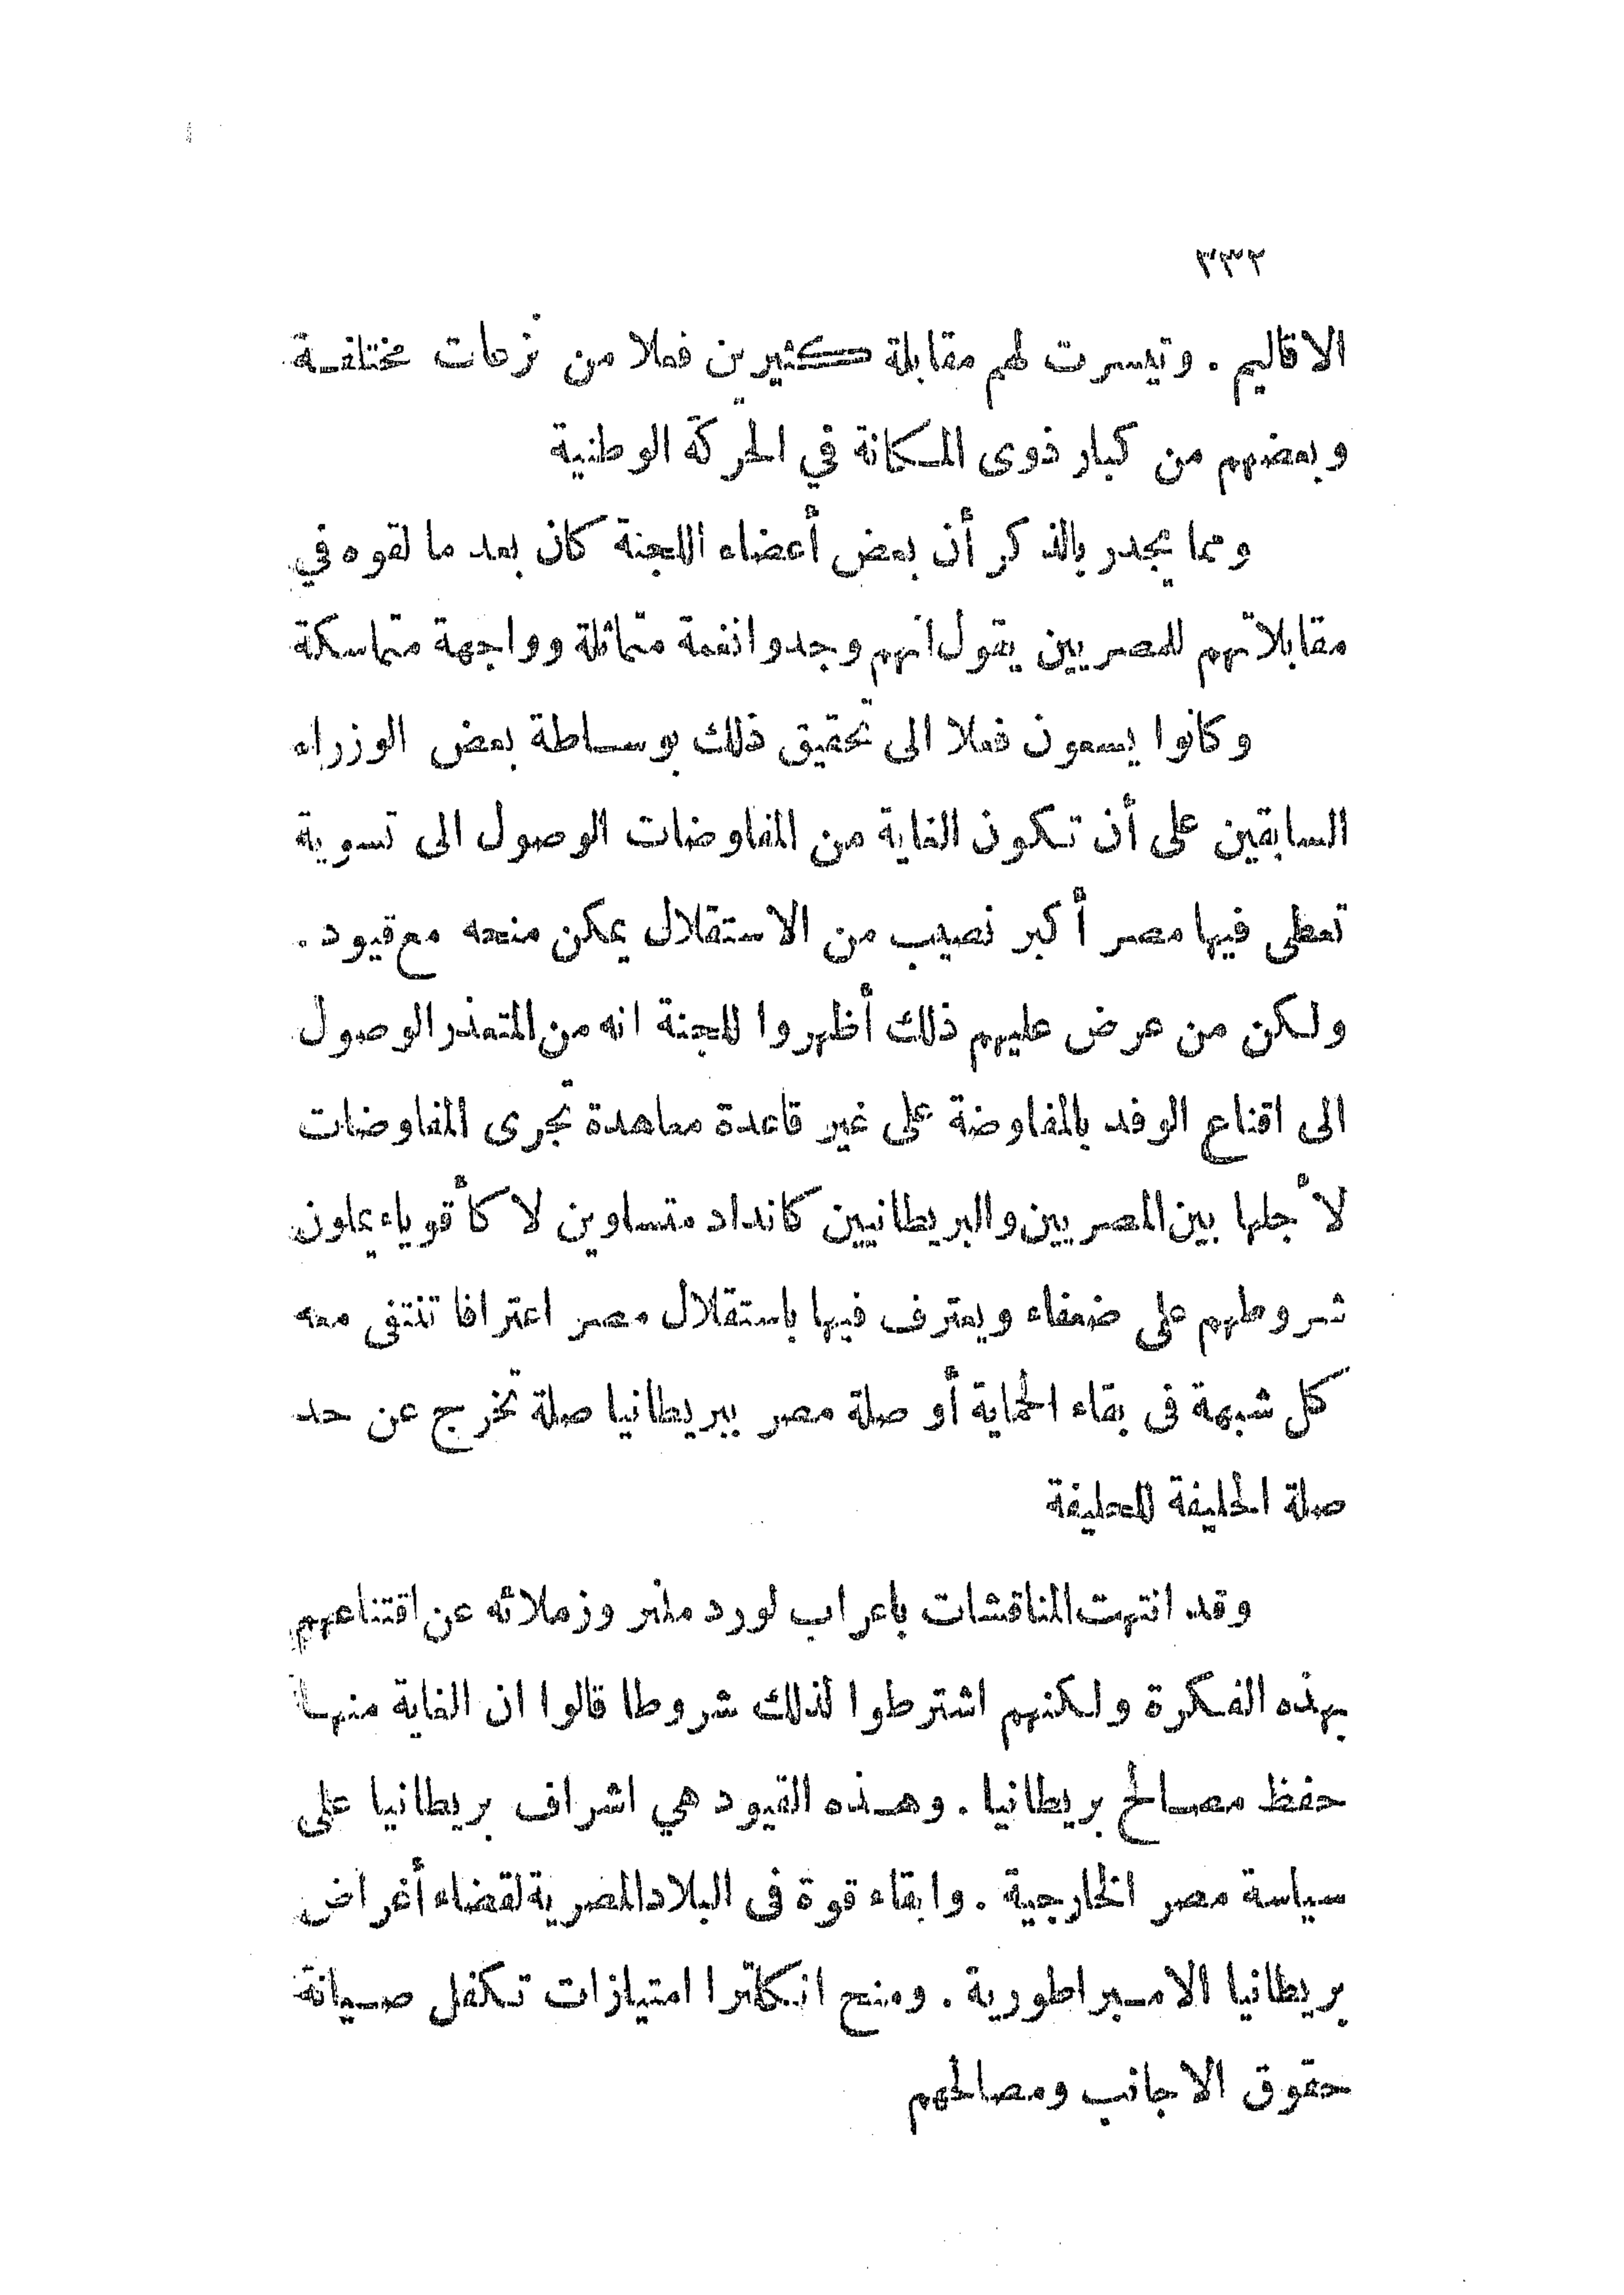 ٣٣٢
الاقاليم . وتيسرت لهم مقابلة كثيرين فعلا من نزعات مختلفة
وبعضهم من كبار ذوى المكانة في الحركة الوطنية
ومما يجدر بالذكر أن بعض أعضاء اللجنة كان بعد ما لقوه في
مقابلاتهم للمصريين يقول انهم وجدوا نغمة متماثلة وواجهة متماسكة
وكانوا يسعون فعلا الى تحقيق ذلك بوساطة بعض الوزراء
السابقين على أن تكون الغاية من المفاوضات الوصول الى تسوية
تعطى فيها مصر أكبر نصيب من الاستقلال يمكن منحه مع قيود .
ولكن من عرض عليهم ذلك أظهروا للجنة انه من المتعذر الوصول
الى اقناع الوفد بالمفاوضة على غير قاعدة معاهدة تجرى المفاوضات
لأجلها بين المصريين والبريطانيين كانداد متساوين لا كأقوياء يملون
شروطهم على ضعفاء ويعترف فيها باستقلال مصر اعترافا تنتفى معه
كل شبهة فى بقاء الحماية أو صلة مصر ببريطانيا صلة تخرج عن حد
صلة الحليفة للحليفة
وقد انتهت المناقشات باعراب لورد ملنر وزملائه عن اقتناعهم
بهذه الفكرة ولكنهم اشترطوا لذلك شروطا قالوا ان الغاية منها
حفظ مصالح بريطانيا . وهذه القيود هي اشراف بريطانيا على
سياسة مصر الخارجية . وابقاء قوة فى البلاد المصرية لقضاء أغراض
بريطانيا الامبراطورية . ومنح انكلترا امتيازات تكفل صيانة
حقوق الاجانب ومصالحهم